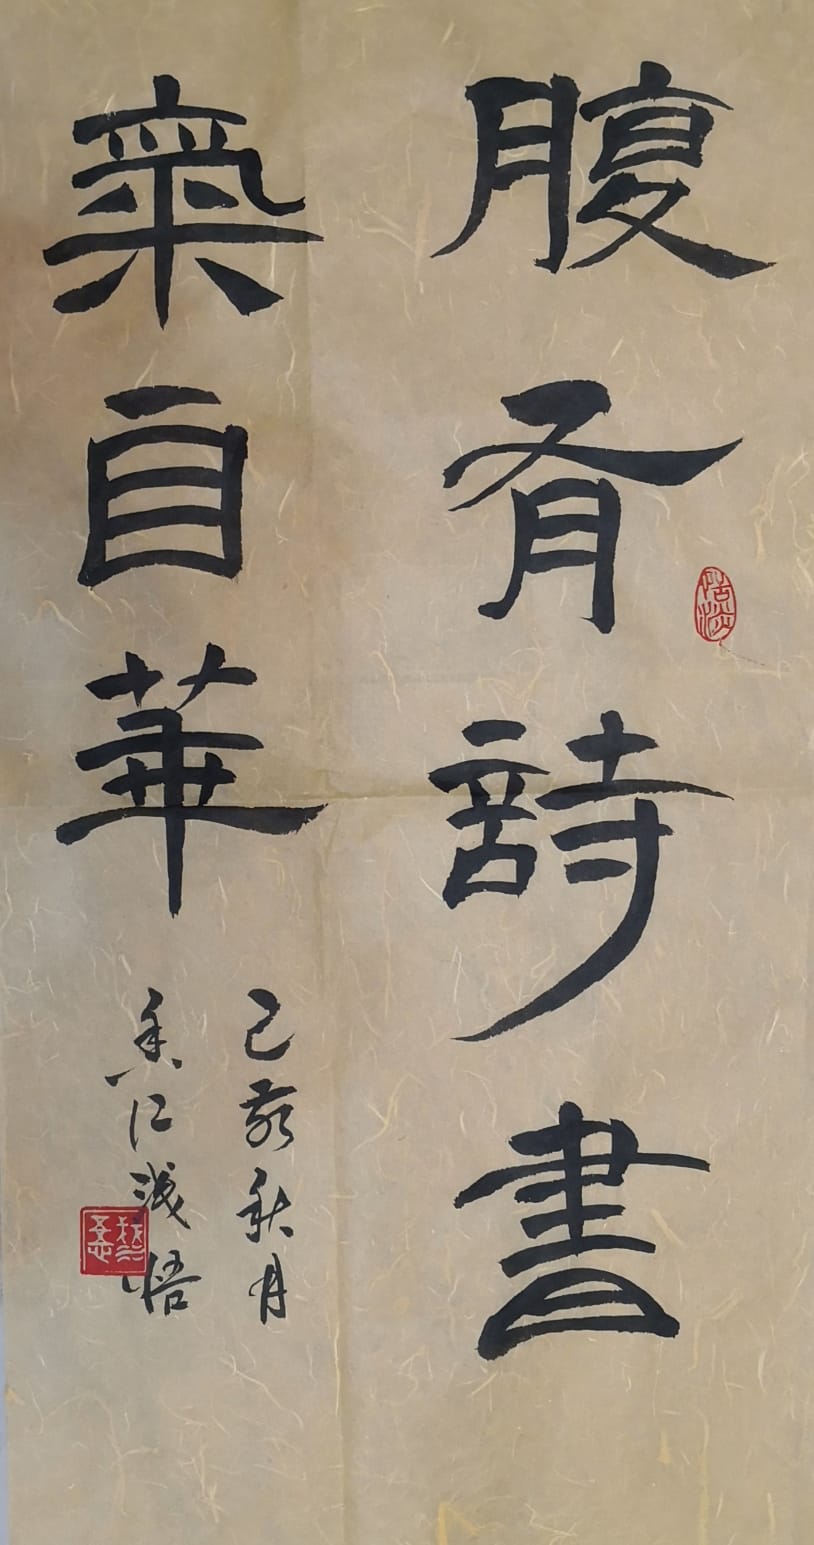 腹有詩書
氣自華
己亥秋月
香江淺悟